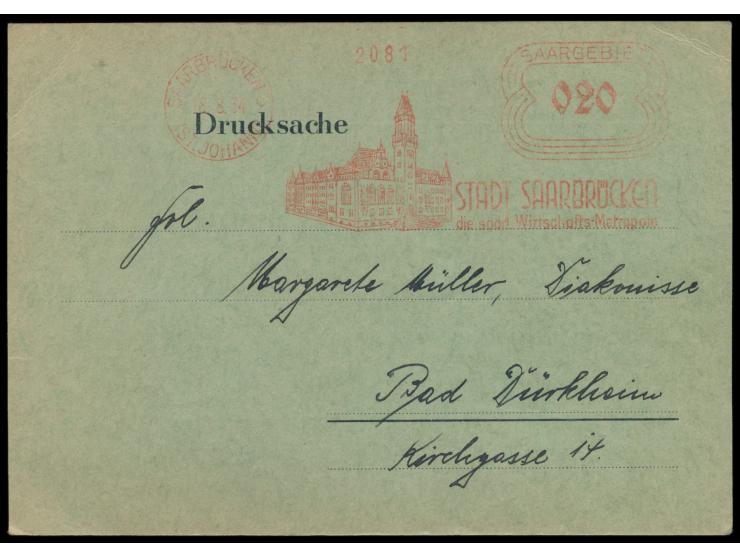 2081
SAARGEBIET
020
SAARBRÜCKEN
8.34
(ST. JOHANN)
Drucksache
STADT SAARBRÜCKEN
die saarl. Wirtschafts-Metropole
Frl.
Margarete Müller, Diakonisse
Bad Dürkheim
Kirchgasse 14.